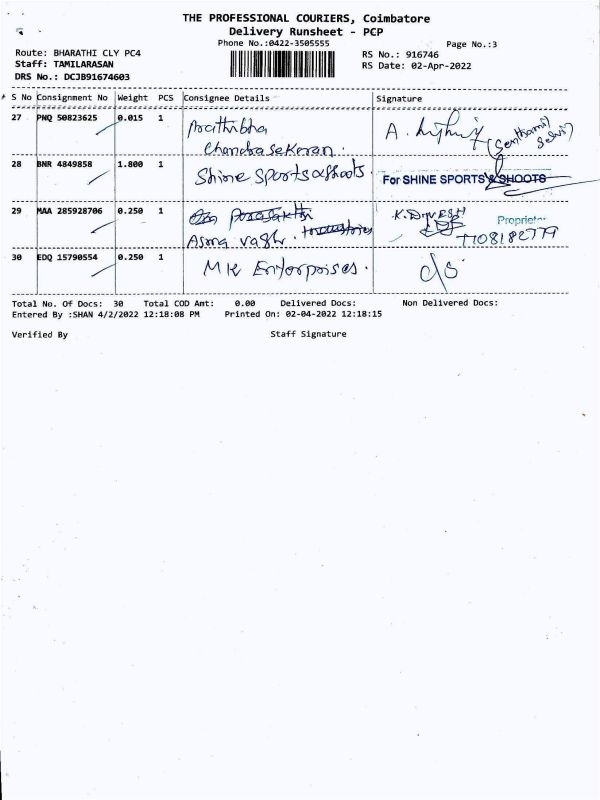 THE PROFESSIONAL COURIERS, Coimbatore
Delivery Runsheet - PCP
Phone No.:0422-3505555
Page No.:3
Route: BHARATHI CLY PC4
RS No.: 916746
Staff: TAMILARASAN
RS Date: 02-Apr-2022
DRS No.: DCJB91674603
S No Consignment No Weight PCS Consignee Details Signature
27 PNQ 50823625 0.015 1 Prathibha
Chandrasekeran.
28 BNR 4849858 1.800 1 Shine Sports & Shoots.
For SHINE SPORTS & SHOOTS
29 MAA 285928706 0.250 1
K. DIVESH
Proprietor
7708182779
30 EDQ 15790554 0.250 1 MK Enterprises.
Total No. Of Docs: 30 Total COD Amt: 0.00 Delivered Docs: Non Delivered Docs:
Entered By :SHAN 4/2/2022 12:18:08 PM Printed On: 02-04-2022 12:18:15
Verified By Staff Signature